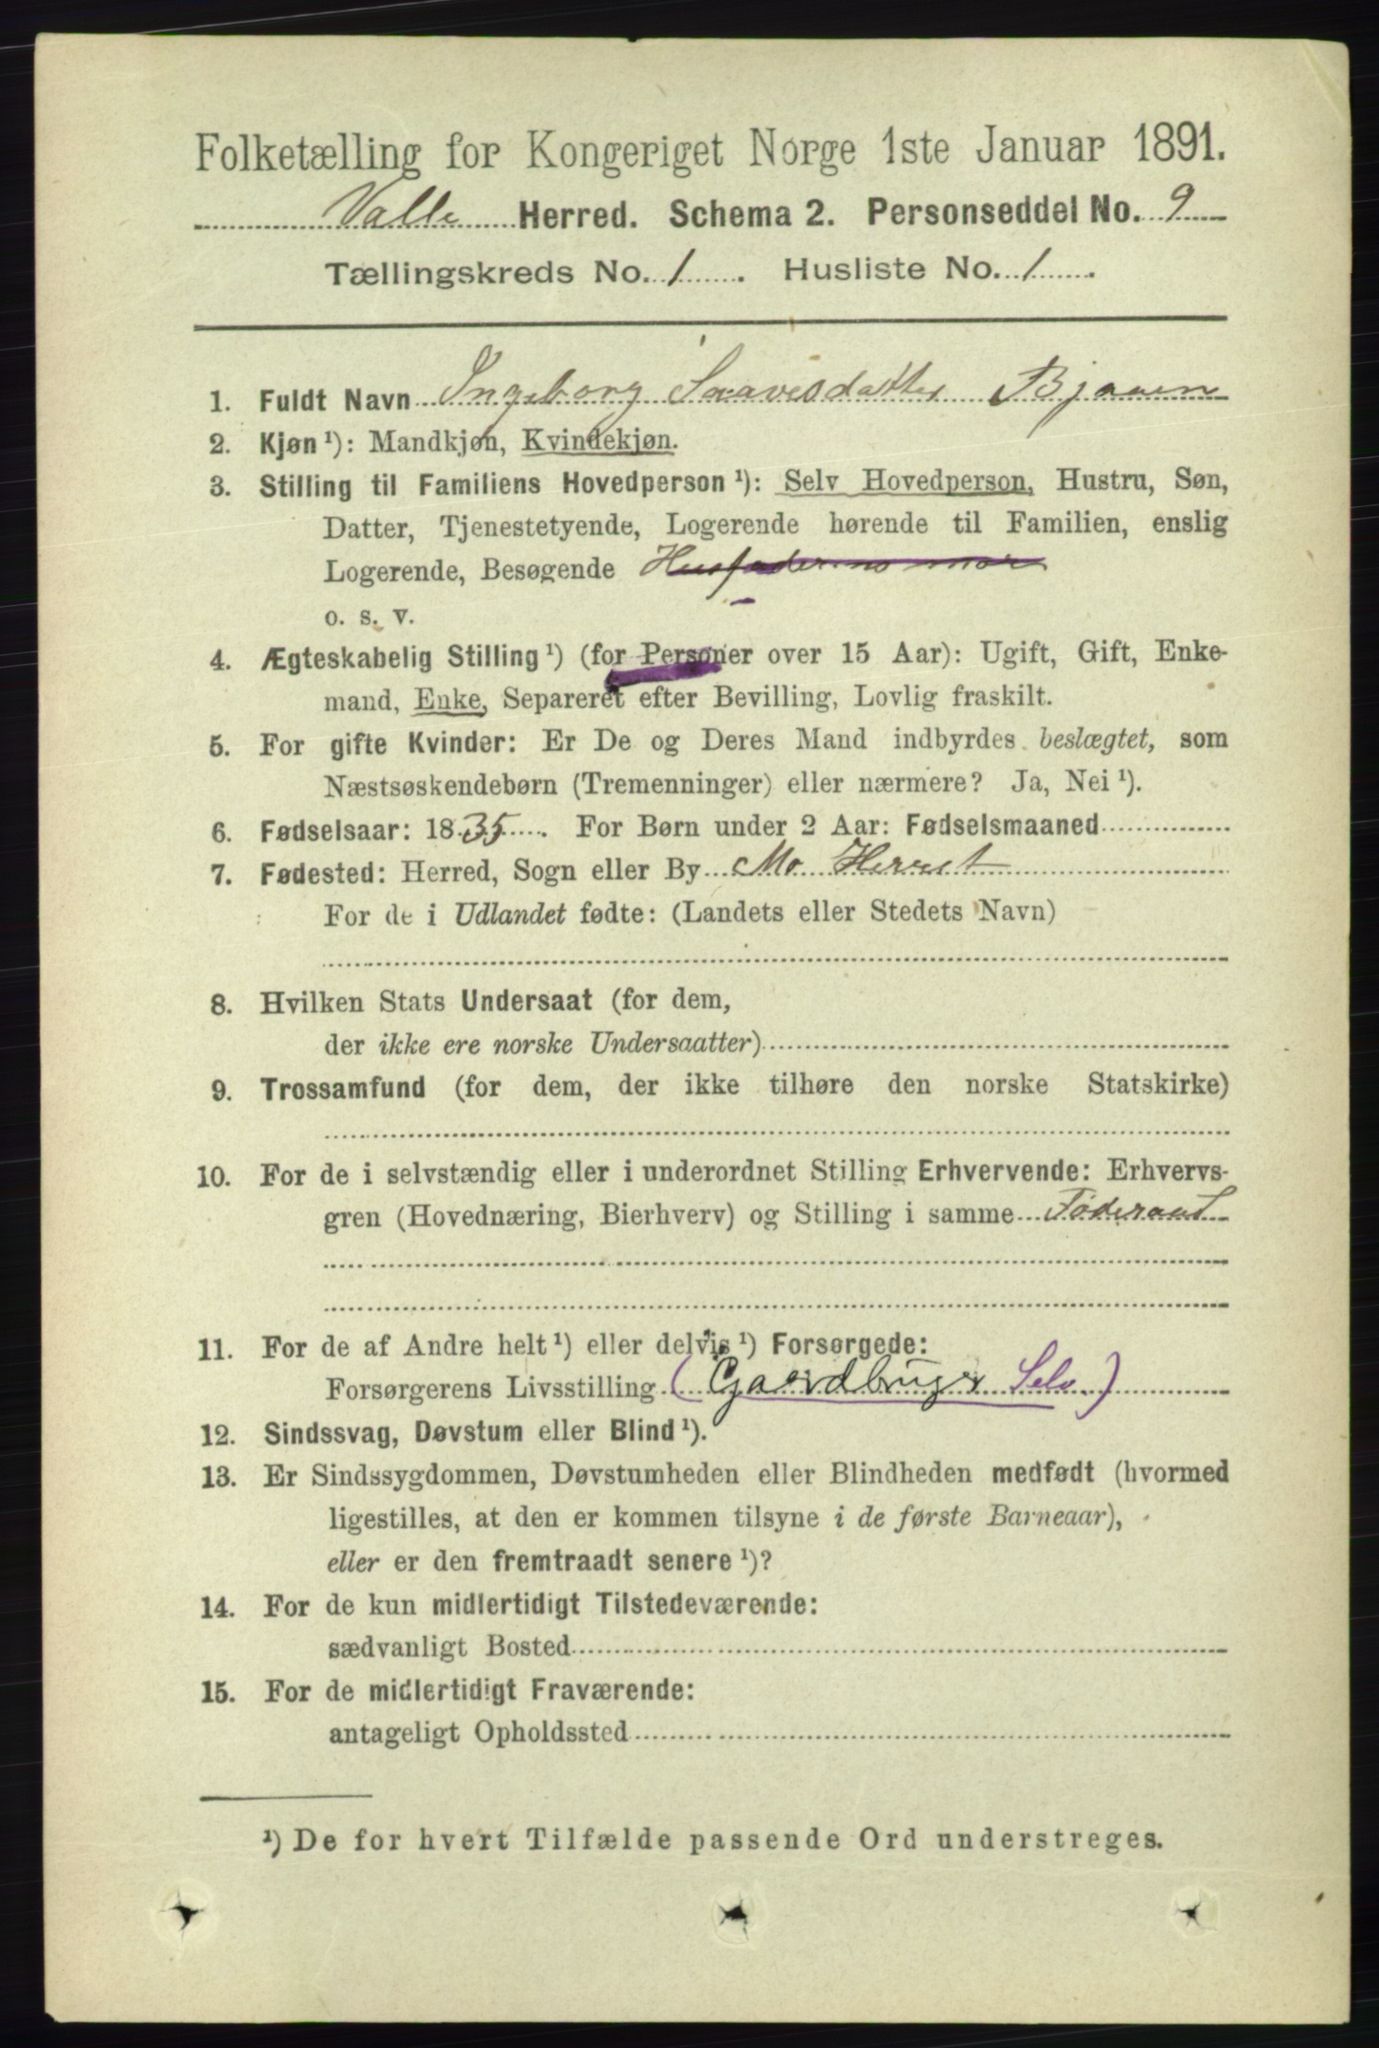 Folketælling for Kongeriget Norge 1ste Januar 1891.
Valle Herred. Schema 2. Personseddel No. 9
Tællingskreds No. 1. Husliste No. 1.
1. Fuldt Navn Ingeborg Saavesdatter Bjaaen
2. Kjøn ¹): Mandkjøn, Kvindekjøn.
3. Stilling til Familiens Hovedperson ¹): Selv Hovedperson, Hustru, Søn,
Datter, Tjenestetyende, Logerende hørende til Familien, enslig
Logerende, Besøgende Husfaderens mor
o. s. v.
4. Ægteskabelig Stilling ¹) (for Personer over 15 Aar): Ugift, Gift, Enke-
mand, Enke, Separeret efter Bevilling, Lovlig fraskilt.
5. For gifte Kvinder: Er De og Deres Mand indbyrdes beslægtet, som
Næstsøskendebørn (Tremenninger) eller nærmere? Ja, Nei ¹).
6. Fødselsaar: 1835. For Børn under 2 Aar: Fødselsmaaned
7. Fødested: Herred, Sogn eller By Mo Herret
For de i Udlandet fødte: (Landets eller Stedets Navn)
8. Hvilken Stats Undersaat (for dem,
der ikke ere norske Undersaatter)
9. Trossamfund (for dem, der ikke tilhøre den norske Statskirke)
10. For de i selvstændig eller i underordnet Stilling Erhvervende: Erhvervs-
gren (Hovednæring, Bierhverv) og Stilling i samme Föderaad
11. For de af Andre helt ¹) eller delvis ¹) Forsørgede:
Forsørgerens Livsstilling (Gaardbruger Selv)
12. Sindssvag, Døvstum eller Blind ¹).
13. Er Sindssygdommen, Døvstumheden eller Blindheden medfødt (hvormed
ligestilles, at den er kommen tilsyne i de første Barneaar),
eller er den fremtraadt senere ¹)?
14. For de kun midlertidigt Tilstedeværende:
sædvanligt Bosted
15. For de midlertidigt Fraværende:
antageligt Opholdssted
¹) De for hvert Tilfælde passende Ord understreges.